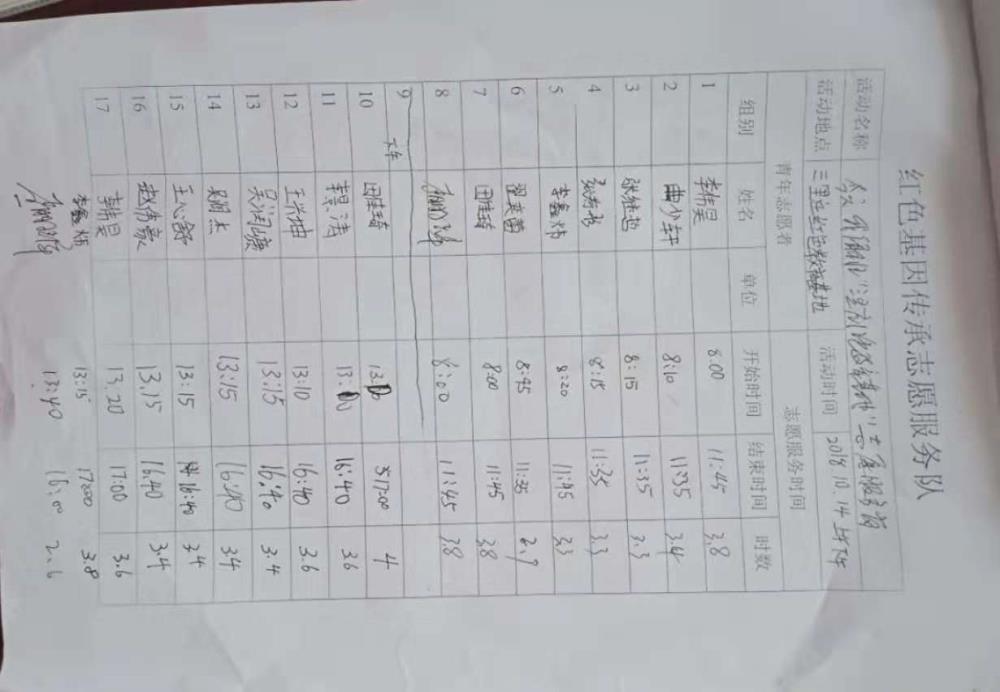 红色基因传承志愿服务队
活动名称
活动地点 三里庄红色教育基地 活动时间 2018.10.14
青年志愿者 志愿服务时间
组别 姓名 单位 开始时间 结束时间 时数
1 李伟昊 8:00 11:45 3.8
2 曲少轩 8:10 11:35 3.4
3 8:15 11:35 3.3
4 8:15 11:35 3.3
5 李鑫炜 8:20 11:45 3.3
6 翟英蕾 8:45 11:35 2.9
7 田佳琦 8:00 11:45 3.8
8 8:00 11:45 3.8
9 下午
10 田佳琦 13:00 17:00 4
11 李昊涛 13:00 16:40 3.6
12 13:10 16:40 3.6
13 吴润康 13:15 16:40 3.4
14 13:15 16:40 3.4
15 王心馨 13:15 16:40 3.4
16 赵伟豪 13:15 16:40 3.4
17 李伟昊 13:20 17:00 3.6
李鑫炜 13:15 17:00 3.8
13:40 16:00 2.6